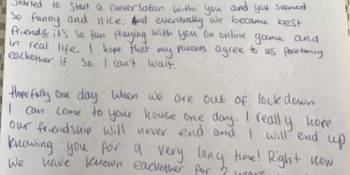 started to start a conversation with you and you seemed
so funny and nice. And eventually we became best
friends it's so fun playing with you on online game and
in real life. I hope that my parents agree to us facetiming
eachother if so. I can't wait.
Hopefully one day when we are out of lockdown
I can come to your house one day. I really hope
our friendship will never end and I will end up
knowing you for a very long time! Right now
we have known eachother for 2